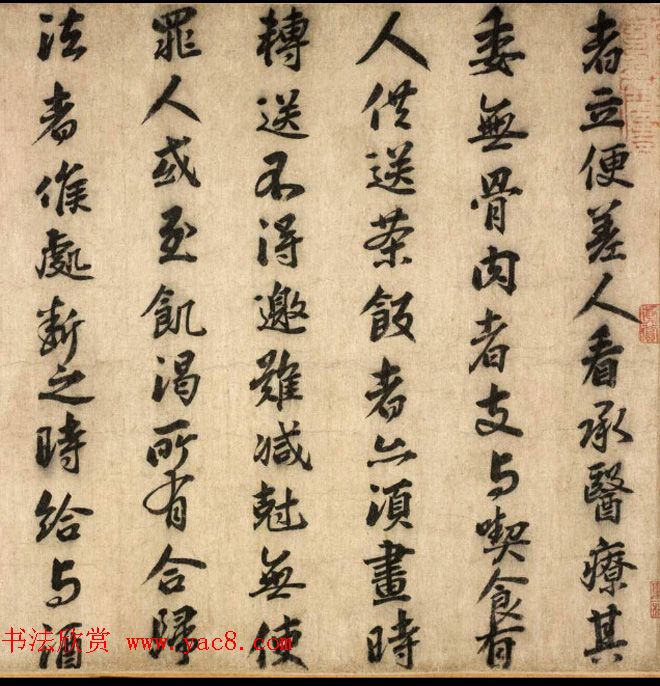 者立便差人看承醫療其
委無骨肉者支与喫食有
人供送茶飯者亦須畫時
轉送不得邀難減尅無使
罪人或至飢渴所有合歸
法者候處斷之時給与酒
书法欣赏 www.yac8.com